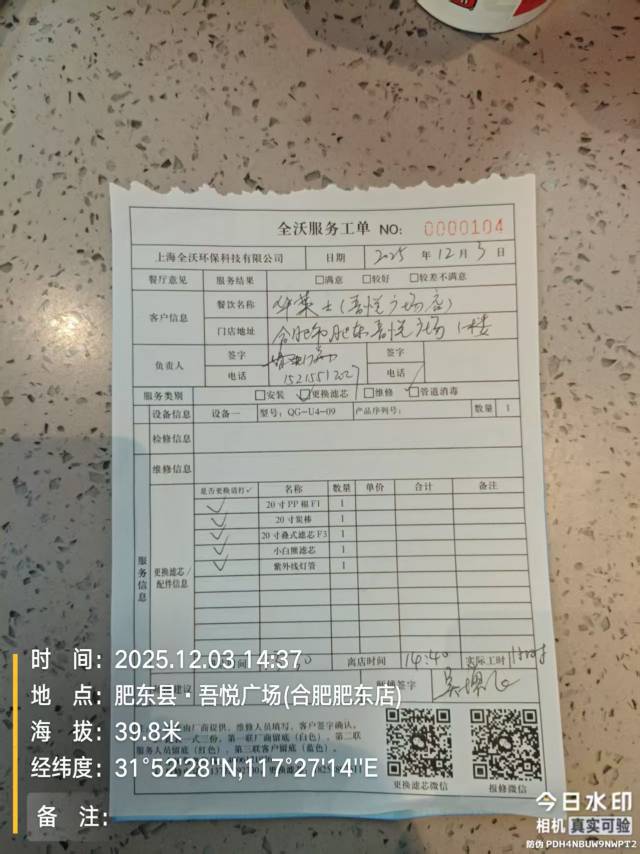 全沃服务工单 NO: 0000104
上海全沃环保科技有限公司 日期 2025 年 12 月 3 日
餐厅意见 服务结果 □满意 □较好 □较差不满意
客户信息 餐饮名称 华莱士(吾悦广场店)
门店地址 合肥市肥东吾悦广场1楼
负责人 签字 签字
电话 15215512027 电话
服务类别 □安装 ☑更换滤芯 □维修 ☑管道消毒
设备信息 设备一 型号: QG-U4-09 产品序列号: 数量 1
检修信息
维修信息
服务信息
更换滤芯/配件信息
是否更换请打✓ 名称 数量 单价 合计 备注
✓ 20寸PP棉F1 1
✓ 20寸炭棒 1
✓ 20寸叠式滤芯F3 1
✓ 小白熊滤芯 1
✓ 紫外线灯管 1
离店时间 14:40 实际工时
建议 签字
由厂商提供、维修人员填写、客户签字确认。
一式三份。第一联厂商留底(白色)、第二联
服务人员留底(红色)、第三联客户留底(蓝色)。
更换滤芯微信 报修微信
时 间: 2025.12.03 14:37
地 点: 肥东县·吾悦广场(合肥肥东店)
海 拔: 39.8米
经纬度: 31°52'28"N,117°27'14"E
备 注:
今日水印
相机 真实可验
防伪 PDH4NBUW9NWPT2